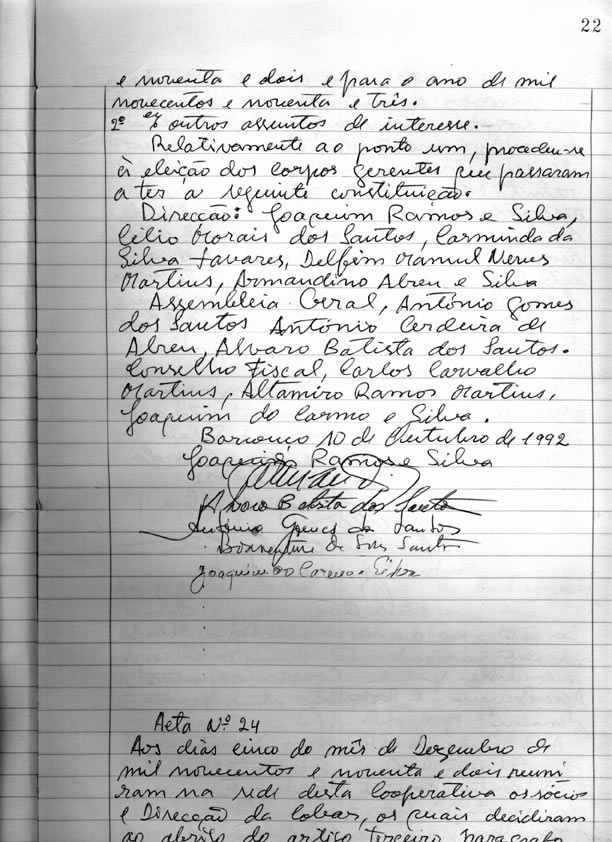 22
e noventa e dois e para o ano de mil
novecentos e noventa e três.
2º outros assuntos de interesse.
Relativamente ao ponto um, procedeu-se
à eleição dos corpos gerentes que passaram
a ter a seguinte constituição.
Direcção: Joaquim Ramos e Silva,
Célio Morais dos Santos, Carminda da
Silva Tavares, Delfim Manuel Neves
Martins, Armandino Abreu e Silva
Assembleia Geral, António Gomes
dos Santos António Cerdeira de
Abreu, Alvaro Batista dos Santos.
Conselho Fiscal, Carlos Carvalho
Martins, Altamiro Ramos Martins,
Joaquim do Carmo e Silva.
Barrouço 10 de Outubro de 1992
Joaquim Ramos e Silva
Alvaro Batista dos Santos
António Gomes dos Santos
Boaventura de Santos
Joaquim do Carmo e Silva
Acta Nº 24
Aos dias cinco do mês de Dezembro de
mil novecentos e noventa e dois reuni
ram na sede desta Cooperativa os sócios
e Direcção da cobar, os quais decidiram
ao abrigo do artigo terceiro paragrafo